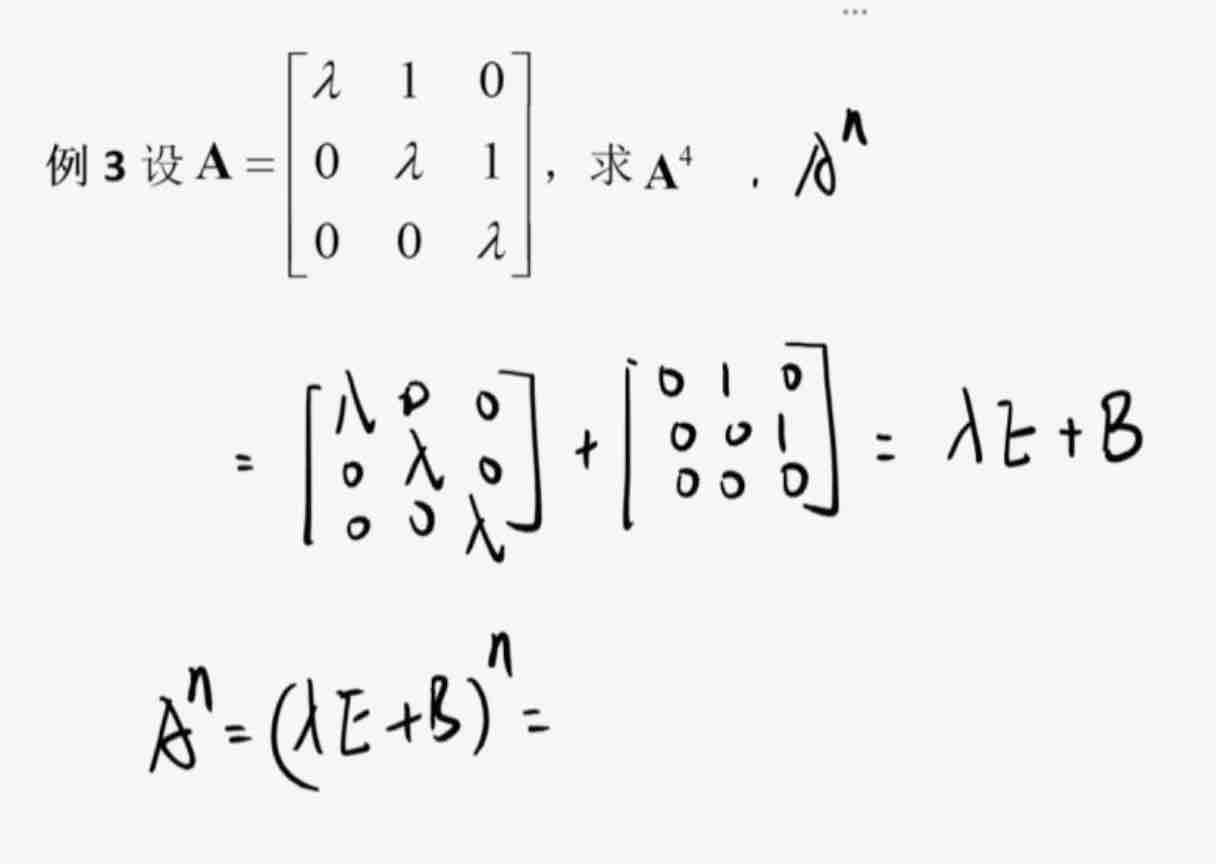 ...
例 3 设 A = [λ 1 0; 0 λ 1; 0 0 λ], 求 A⁴ . Aⁿ
= [λ 0 0; 0 λ 0; 0 0 λ] + [0 1 0; 0 0 1; 0 0 0] = λE + B
Aⁿ = (λE + B)ⁿ =